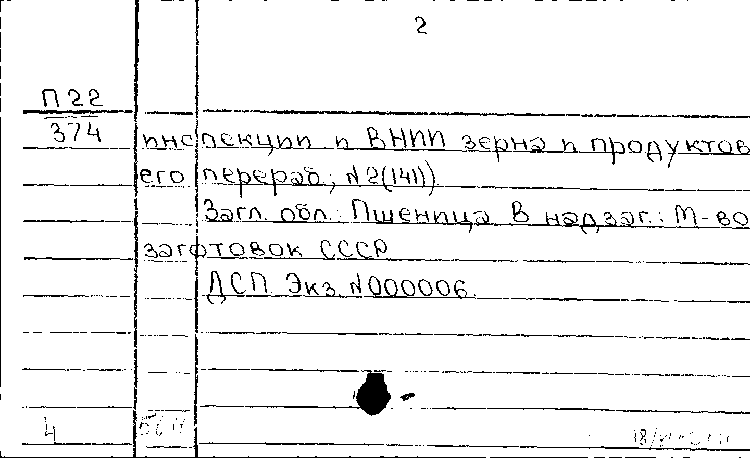 2
П22
374
инспекции и ВНИИ зерна и продуктов
его перераб; N2(141))
Загл. обл.: Пшеница В надзаг.: М-во
заготовок СССР
ДСП Экз. N000006.
4